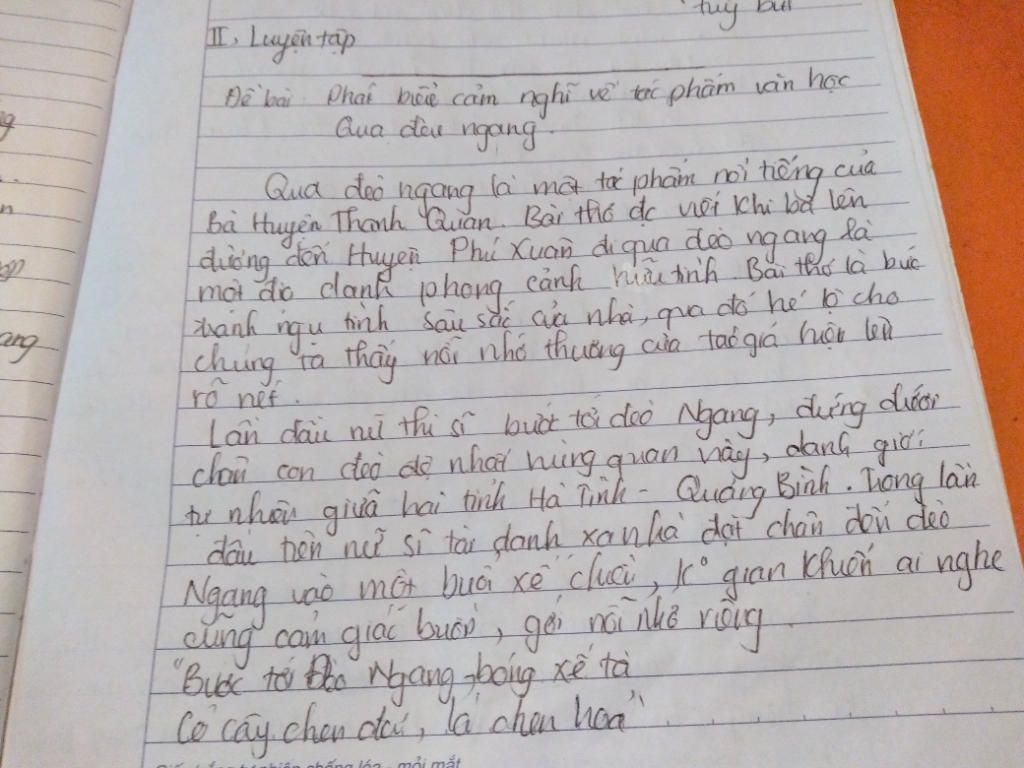 tuỳ bút
II, Luyện tập
Đề bài Phát biểu cảm nghĩ về tác phẩm văn học
Qua đèo ngang.
Qua đeò ngang là một tác phẩm nổi tiếng của
Bà Huyện Thanh Quan. Bài thơ đc viết khi bà lên
đường đến Huyện Phú Xuân đi qua đèo ngang là
một địa danh phong cảnh hữu tình Bài thơ là bức
tranh ngụ tình sâu sắc của nhà, qua đó hé lộ cho
chúng ta thấy nỗi nhớ thương của tác giả luôn lên
rõ nét.
Lần đầu nữ thi sĩ bước tới đèo Ngang, đứng dưới
chân con đeò đệ nhất hùng quan này, danh giới
tự nhiên giữa hai tỉnh Hà Tĩnh - Quảng Bình. Trong lần
đầu tiên nữ sĩ tài danh xa nhà đặt chân đến đèo
Ngang vào một buổi xế chiều, k° gian khiến ai nghe
cũng cảm giác buồn, gợi nỗi nhớ riêng
"Bước tới Đèo Ngang bóng xế tà
Cỏ cây chen đá, lá chen hoa"
mỏi mắt